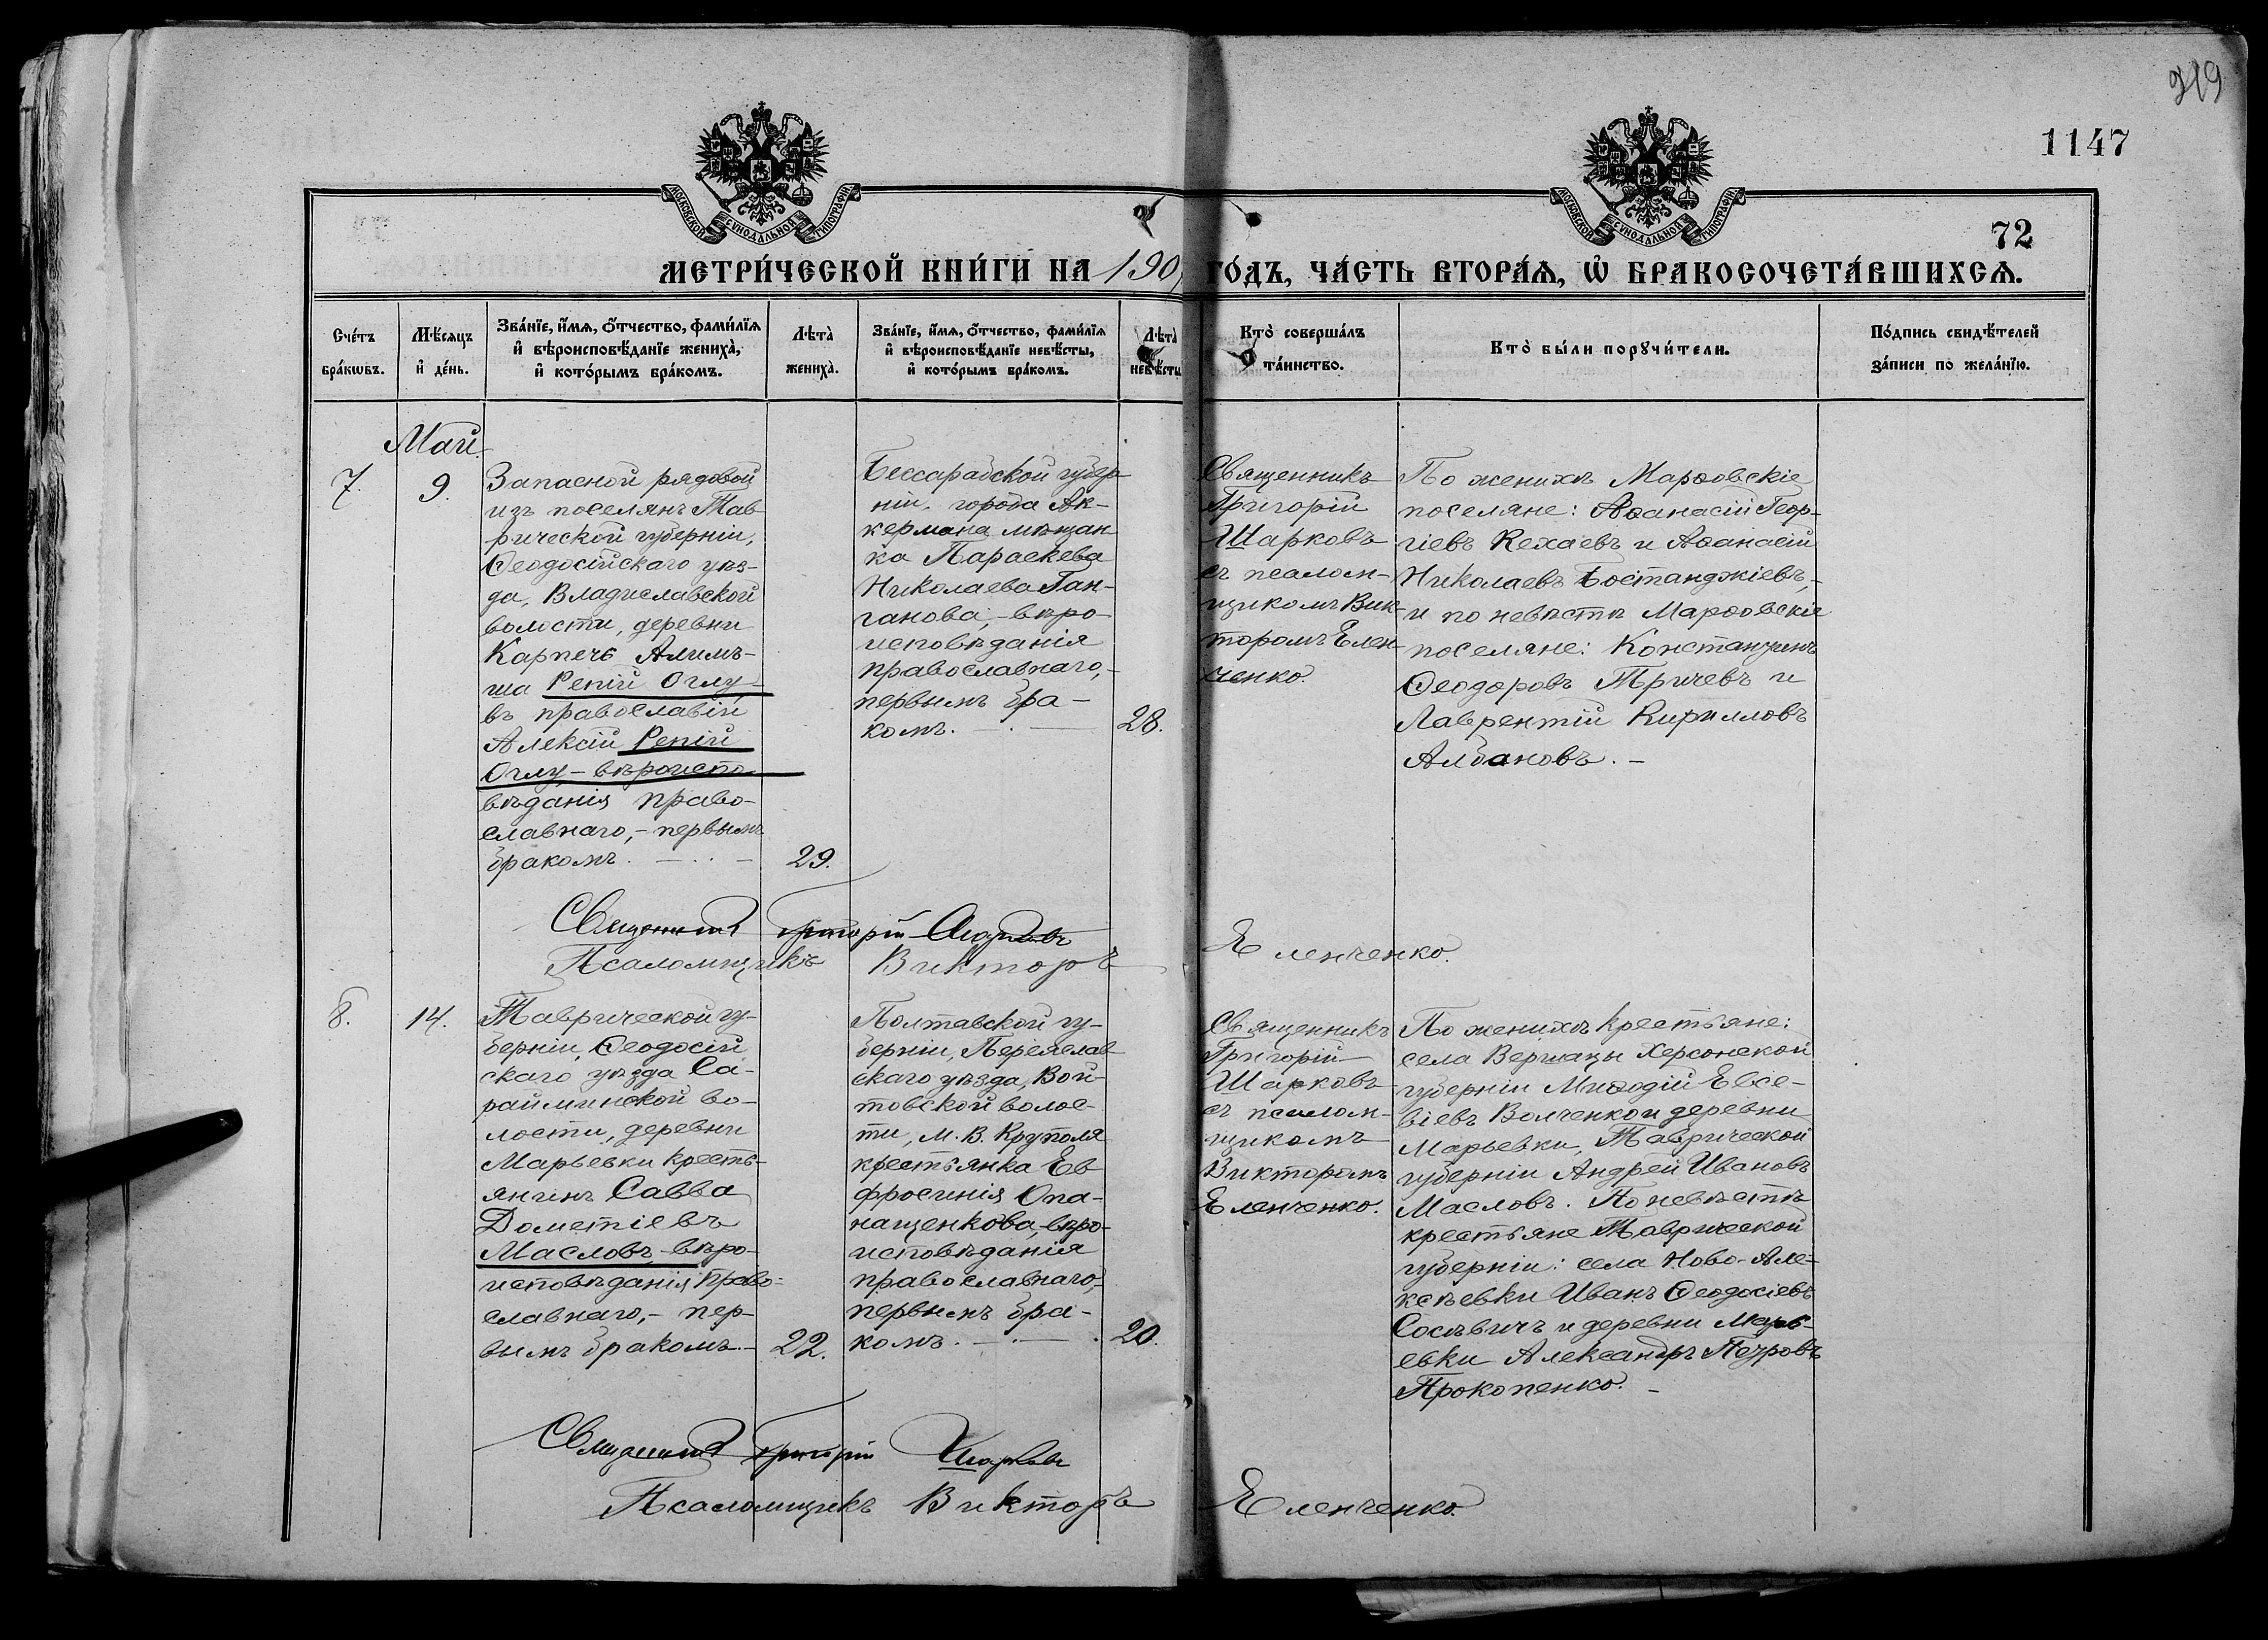 219
1147
72
МОСКОВСКОЙ СУНОДАЛЬНОЙ ТИПОГРАФІИ
МОСКОВСКОЙ СУНОДАЛЬНОЙ ТИПОГРАФІИ
МЕТРИ́ЧЕСКОЙ КНИ́ГИ НА 190 ГО́ДЪ, ЧА́СТЬ ВТОРА́Ѧ, Ѽ БРАКОСОЧЕТА́ВШИХСѦ.
Сче́тъ
бра́кѡвъ.
Мѣ́сяцъ
и҆ де́нь.
Зва́нїе, и҆́мѧ, о҆́тчество, фами́лїѧ
и҆ вѣроисповѣ́данїе жениха̀,
и҆ кото́рымъ бра́комъ.
Лѣта̀
жениха̀.
Зва́нїе, и҆́мѧ, о҆́тчество, фами́лїѧ
и҆ вѣроисповѣ́данїе невѣ́сты,
и҆ кото́рымъ бра́комъ.
Лѣта̀
невѣ́сты
Кто̀ соверша́лъ
та́инство.
Кто̀ бы́ли порꙋчи́тели.
По́дпись свидѣ́телей
за́писи по жела́нїю.
Май.
7.
9.
Запасной рядовой
изъ поселянъ Тав-
рической губерніи,
Ѳеодосійскаго уѣз-
да, Владиславской
волости, деревни
Карпечь Алимъ-
ша Репій Оглу,-
въ православіи
Алексій Репій
Оглу,- вѣроиспо-
вѣданія право-
славнаго,- первымъ
бракомъ.
29.
Бессарабской губер-
ніи, города Ак-
кермана мѣщан-
ка Параскева
Николаева Ган-
ганова,- вѣро-
исповѣданія
православнаго,-
первымъ бра-
комъ.
28.
Священникъ
Григорій
Шарковъ
съ псалом-
щикомъ Вик-
торомъ Елен-
ченко.
По женихѣ Марѳовскіе
поселяне: Аѳанасій Геор-
гіевъ Кехаевъ и Аѳанасій
Николаевъ Бостанджіевъ,-
и по невѣстѣ Марѳовскіе
поселяне: Константинъ
Ѳеодоровъ Тричевъ и
Лаврентій Кирилловъ
Албановъ.-
Священникъ Григорій Шарковъ
Псаломщикъ Викторъ Еленченко.
8.
14.
Таврической гу-
берніи, Ѳеодосій
скаго уѣзда Са-
райминской во-
лости, деревни
Марьевки кресть-
янинъ Савва
Дометіевъ
Масловъ,- вѣро-
исповѣданія право-
славнаго,- пер-
вымъ бракомъ.-
22.
Полтавской гу-
берніи, Переяслав-
скаго уѣзда, Вой-
товской волос-
ти, м. В. Круполя
крестьянка Ев
фросинія Опа-
нащенкова,- вѣро-
исповѣданія
православнаго,-
первымъ бра-
комъ.
20.
Священникъ
Григорій
Шарковъ
съ псалом-
щикомъ
Викторомъ
Еленченко.
По женихѣ крестьяне:
села Вершацы Херсонской
губерніи Меѳодій Евсе-
віевъ Волченко и деревни
Марьевки, Таврической
губерніи Андрей Ивановъ
Масловъ. По невѣстѣ
крестьяне Таврической
губерніи: села Ново-Але-
ксѣевки Иванъ Ѳеодосіевъ
Сосѣвичъ и деревни Марь-
евки Александръ Петровъ
Прокопенко.-
Священникъ Григорій Шарковъ
Псаломщикъ Викторъ Еленченко.